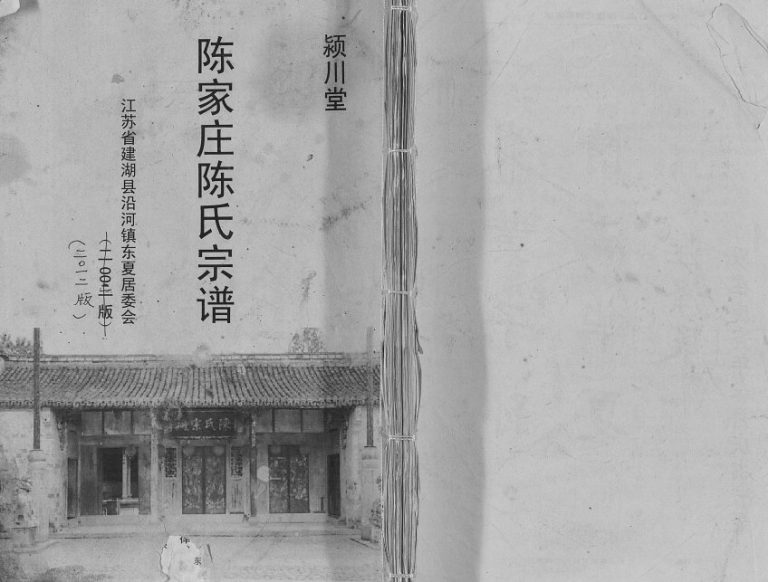 颍川堂
陈家庄陈氏宗谱
江苏省建湖县沿河镇东夏居委会
(二00二版)
(二〇一二版)
陳氏宗祠